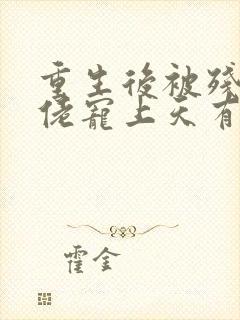 重生後被殘
佬寵上天有
霍金